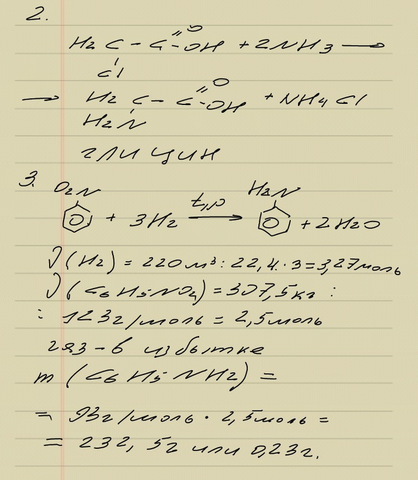 2.
H2C - C =O -OH + 2NH3 →
Cl
→ H2C - C =O -OH + NH4Cl
H2N
глицин
3.
O2N t,p H2N
+ 3H2 → + 2H2O
ν(H2) = 220м³ : 22,4 · 3 = 3,27моль
ν(C6H5NO2) = 307,5кг :
: 123г/моль = 2,5моль
газ - в избытке
m (C6H5NH2) =
= 93г/моль · 2,5моль =
= 232,5г или 0,23г.